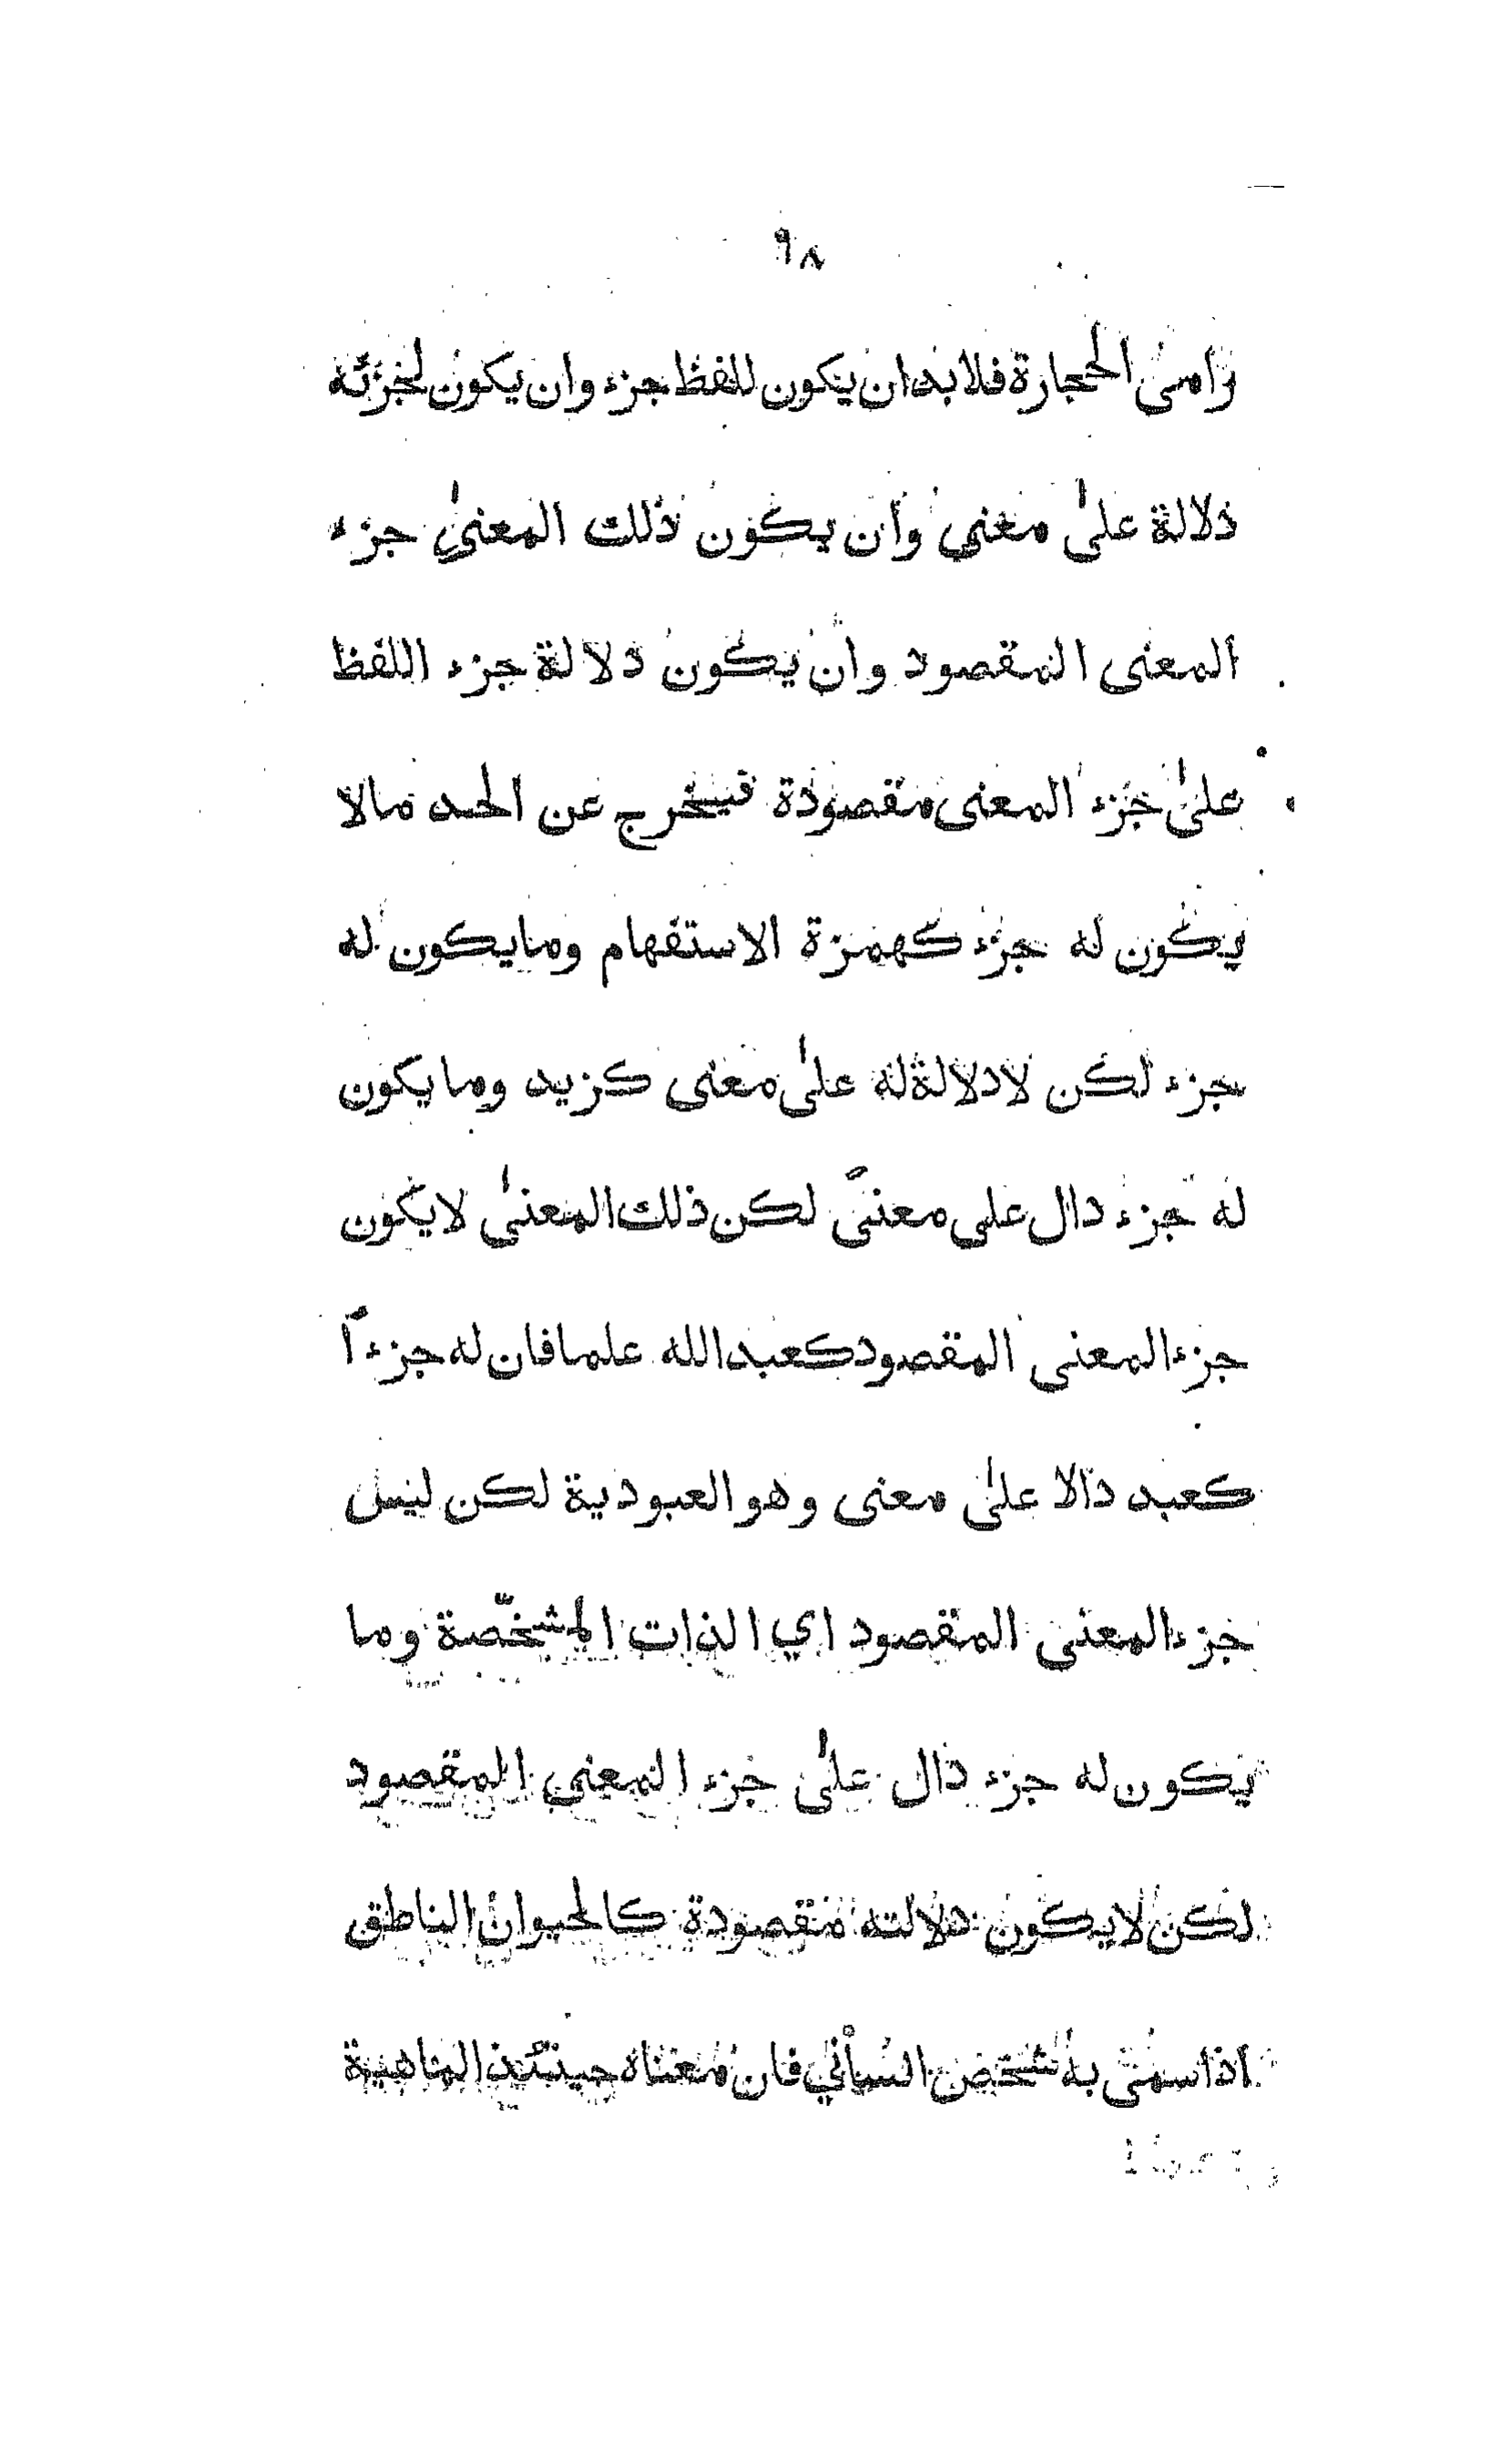 ٩٨
رامى الحجارة فلا بد ان يكون للفظ جزء وان يكون لجزئه
دلالة علىٰ معنى وان يكون ذلك المعنىٰ جزء
المعنى المقصود وان يكون دلالة جزء اللفظ
علىٰ جزء المعنى مقصودة فيخرج عن الحد مالا
يكون له جزء كهمزة الاستفهام وما يكون له
جزء لكن لا دلالة له علىٰ معنى كزيد وما يكون
له جزء دال على معنىً لكن ذلك المعنىٰ لا يكون
جزء المعنى المقصود كعبد الله علما فان له جزءاً
كعبد دالا علىٰ معنى وهو العبودية لكن ليس
جزء المعنى المقصود اي الذات المشخّصة وما
يكون له جزء دال علىٰ جزء المعنى المقصود
لكن لا يكون دلالته مقصودة كالحيوان الناطق
اذا سمى به شخص انساني فان معناه حينئذ الماهية